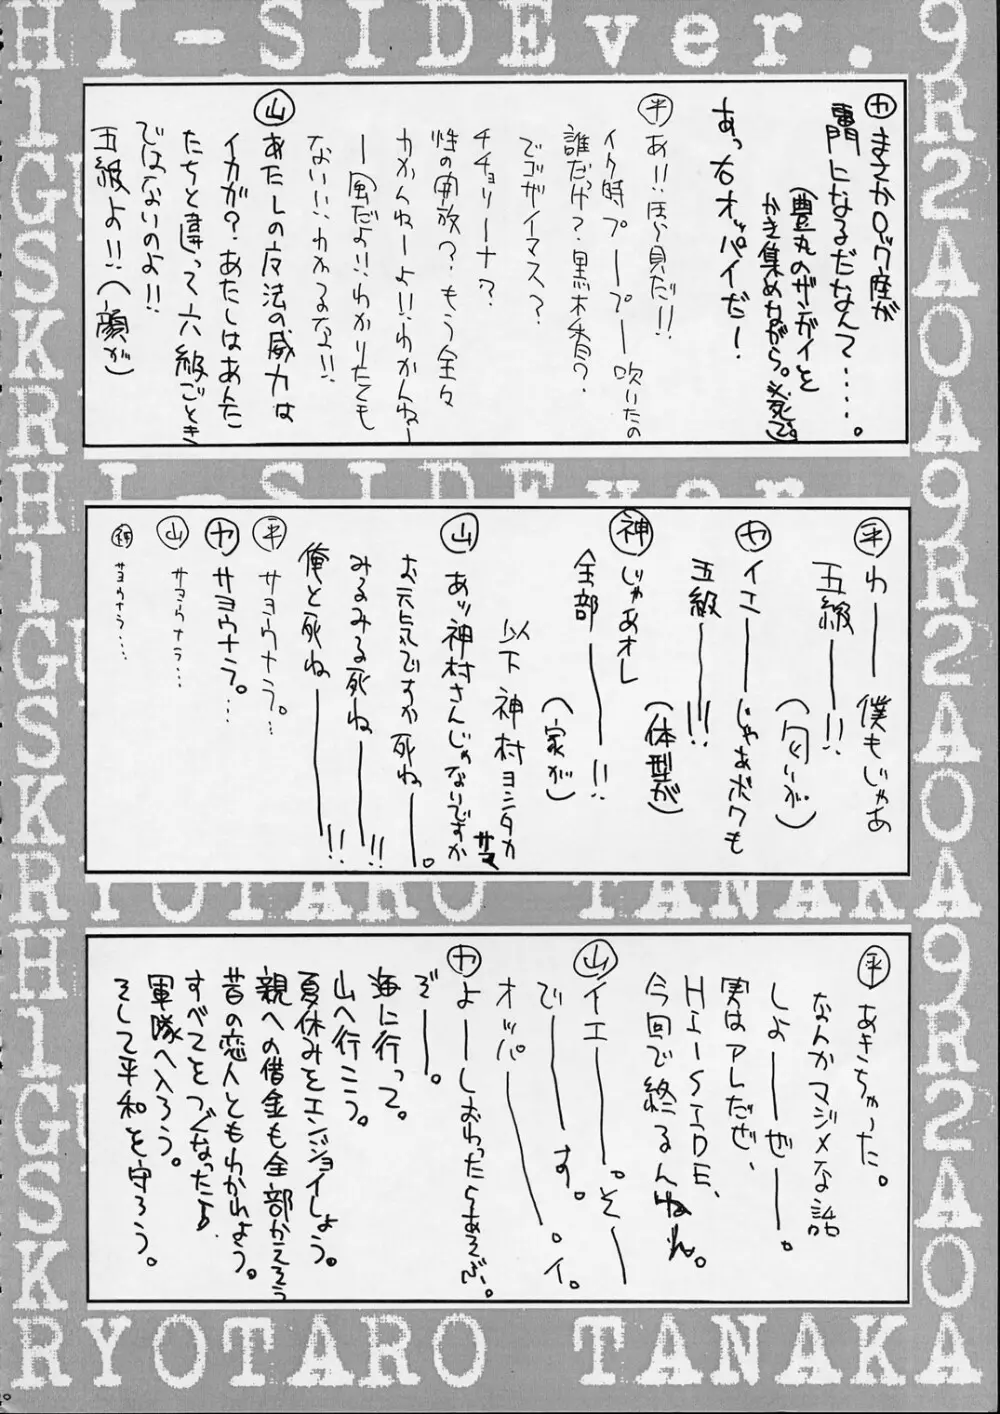 HI-SIDEver.
カ まさかロック座が
鬪になるだなんて‥‥‥。
(豊丸のザーガイを
かき集めながら。必死で。)
あっ右オッパイだー!
平 あ!!ほら貝だ!!
イク時プープー吹いたの
誰だっけ?黒木香?
でゴザイマス?
チチョリーナ?
性の開放?もう全々
わかんねーよ!!わかんねー
ー風だよ!!わかりたくも
ない!!わかるな!!
山 あたしの女法の威力は
イカが?あたしはあんた
たちと違って六級ごとき
ではないのよ!!
五級よ!!(顔が)
平 わー 僕もじゃあ
五級ー!! (匂いが。)
カ イエー じゃあボクも
五級ー!!! (体型が)
神 じゃあオレ
全部ー!! (家が)
以下神村ヨシタカサマ
山 あッ神村さんじゃないですか
お元気ですか死ねー。
みるみる死ねー!!
俺と死ねー!!
平 サヨウナラ。‥
カ サヨウナラ。‥
山 サヨウナラ‥‥
神 サヨウナラ‥‥
平 あきちゃった。
なんかマジメな話
しよーぜー。
実はアレだぜ、
HI-SIDE、
今回で終るんだね。
山 イエー。そー
でーす。
オッパー。イ。
カ よーしおわったらあそぶ。
ぞー。
海に行って。
山へ行こう。
夏休みをエンジョイしよう。
親への借金も全部かえそう
昔の恋人ともわかれよう。
すべてをつぐなったよ
軍隊へ入ろう。
そして平和を守ろう。
RYOTARO TANAKA